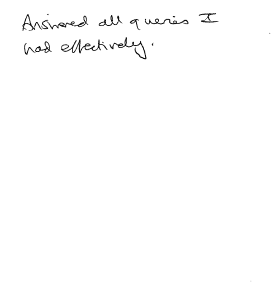 Answered all queries I
had effectively.